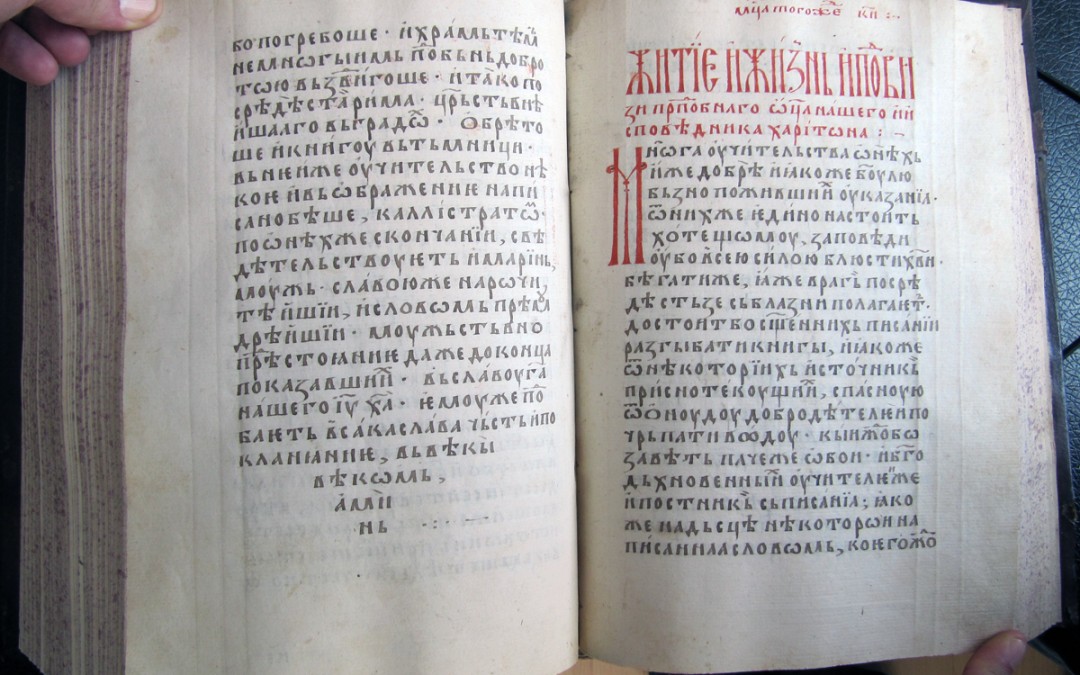 бо погребоше · и҆ храмь тѣмь
немнѡгыимь по́ вьнь добро
тою вьздвигоше · и҆ тако по
средѣ старима · црⷭ҇ьствꙋе
и҆шаго вь градѡⷨ · Ѻбрѣто
ше и҆ кнꙇгоу вьтьмници ·
вь нѥи же оу҆чительство нѣ
коѥ и҆ вьѡбражениѥ напи
сано бѣше, каллїстратѡⷨ ·
по ѡ҆нѣхже скончанїи, свѣ
дѣтельствоуѥть и҆ марїнь,
моужь · славою же нарочи,
тѣишїи, и҆ словѡмь прѣмꙋ
дрѣишїи · моужьстьвно
прⷣѣстоꙗниѥ даже до конца
показавшїи · вь славоу гⷭ҇а
нашего і҆ѵ҃ х҃а · ѥ҆моуже по
баѥть вⷭ҇ака слава чьсть и҆ по
кланꙗниѥ, вь вѣкы
вѣкѡмь,
а҆ми
нь
мⷭ҇ца тогоⷤⷣе ки :·
ЖИТЇЕ И҆ ЖИЗНЬ И҆ ПОⷣВИ
зи прⷣпобнаго ѡ҆ц҃а нашего и҆ и҆
споведника харїтѡна : ~
Мнѡга оу҆чительства ѡ҆нѣхь
и҆же добрѣ и҆ ꙗкоже боу лю
бьзно пожившїиⷯ оу҆казанїа ·
ѿ нихже ѥ҆дино настоить
хотещомоу, заповѣди
оу҆бо всею силою блюсти хвⷭ҇и ·
бѣгати же, ꙗже врагь посрѣ
дѣ стьзе сьблазни полагаѥⷮ ·
достоить бо сщ҃еннихь писанїи
разгыбати книгы, и҆ ꙗкоже
ѿ нѣкоторїихь и҆сточникь
приснотекоущїиⷯ, спасную
ѿѻноудоу добродѣтелнию по
чрьпати водоу · кыимⷤ бо
завѣть пльчеме ѡ҆бои · и҆ бг҃о
дьхновенныиⷯ оу҆чителиѥ же
и҆ постникь сьписанїа; ꙗко
же надь сцѣ нѣкоторои на
писаннаа словѡмь, коѥгожⷣо